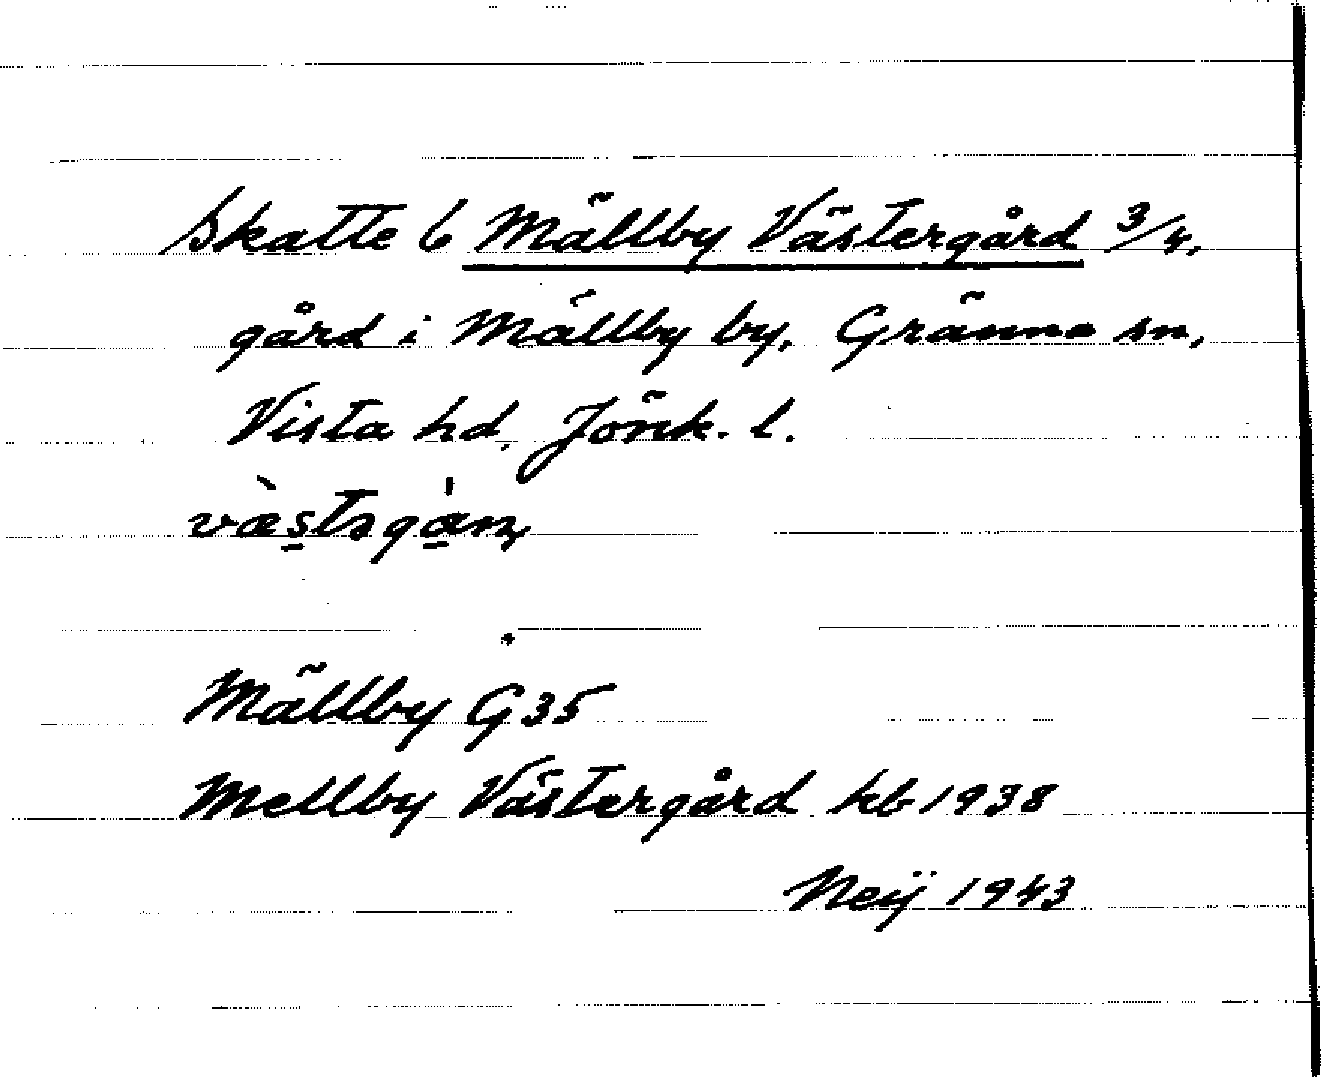 Skatte 6 Mällby Västergård 3/4,
gård i Mällby by. Gränna sn,
Vista hd, Jönk. l.
Mällby G35
Mellby Västergård kb 1938
Neij 1943